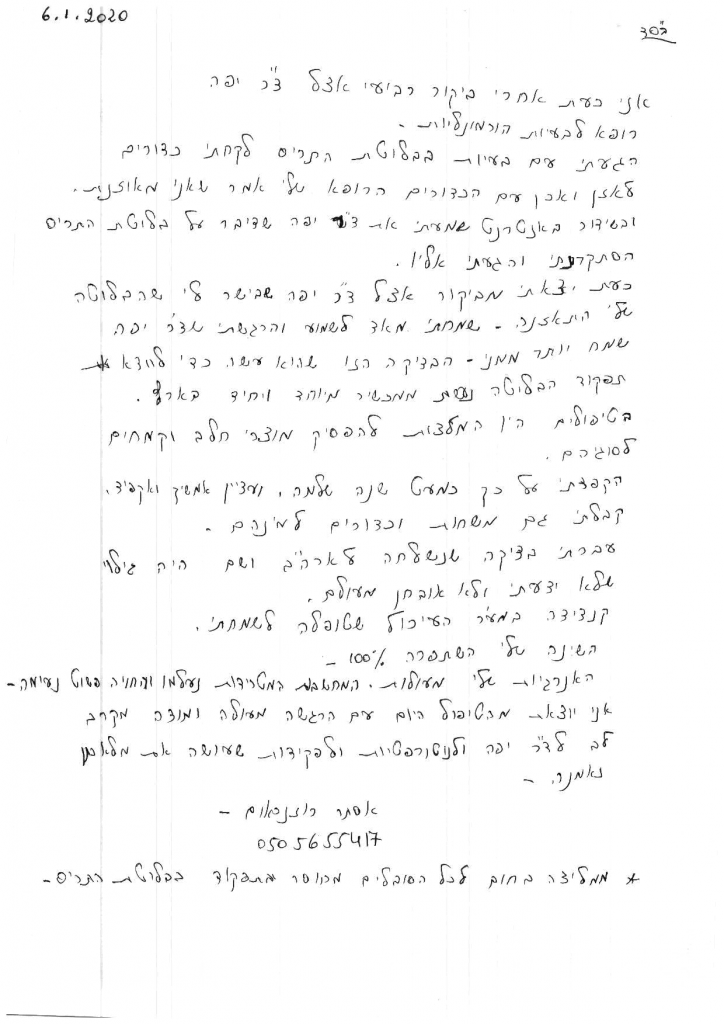 6.1.2020
בס״ד
אני כעת אחרי ביקור רביעי אצל ד״ר יפה
רופא לבעיות הורמונליות -
הגעתי עם בעיות בבלוטת התריס לקחתי כדורים
לאזן ואכן עם הכדורים הרופא שלי אמר שאני מאוזנת.
ובשידור באנטרנט שמעתי את ד״ר יפה שדיבר על בלוטת התריס
הסתקרנתי והגעתי אליו.
כעת יצאתי מביקור אצל ד״ר יפה שבישר לי שהבלוטה
שלי התאזנה - שמחתי מאד לשמוע והרגשתי שד״ר יפה
שמח יותר ממני - הבדיקה הזו שהוא עשה כדי לוודא את
תפקוד הבלוטה נעשת ממכשיר מיוחד ויחיד בארץ.
בטיפולים היו המלצות להפסיק מוצרי חלב וקמחים
לסוגיהם.
הקפדתי על כך כמעט שנה שלמה, ועדיין אמשיך ואקפיד.
קבלתי גם משחות וכדורים למיניהם -
עברתי בדיקה שנשלחה לארה״ב ושם היה גילוי
שלא ידעתי ולא אובחן מעולם.
קנדידה במע׳ העיכול שטופלה לשמחתי.
השינה שלי השתפרה 100% -
האנרגיות שלי מעולות. המחשבות המטרידות נעלמו והחויה פשוט נעימה -
אני יוצאת מהטיפול היום עם הרגשה מעולה ומודה מקרב
לב לד״ר יפה ולנטורופטיות ולפקידות שעושה את מלאכתן
נאמנה. -
אסתר רוזנבאום -
0505655417
* ממליצה בחום לכל הסובלים מחוסר תפקוד בבלוטת התריס -